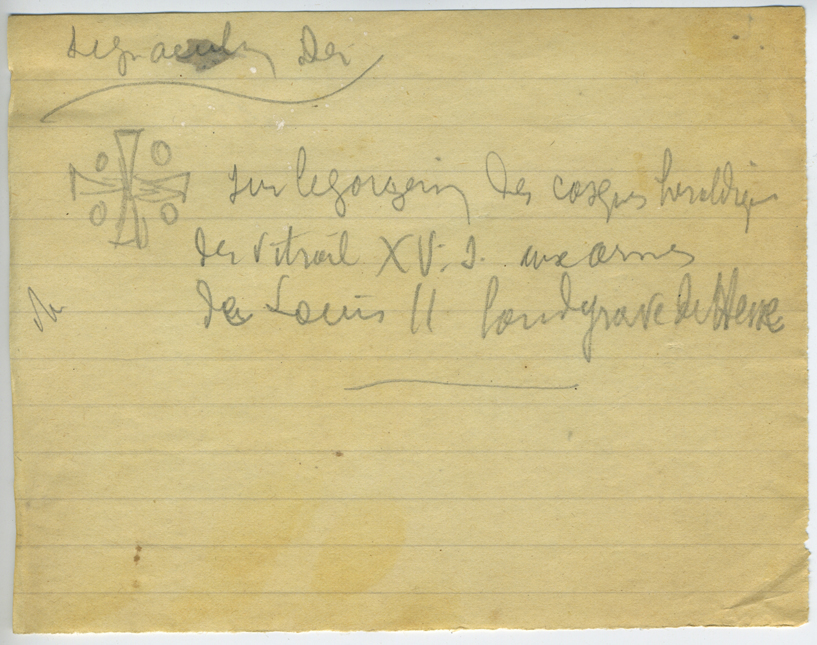 Signaculum Dei
sur le gorgerin des casques héraldiques
des vitrail XV. s. aux armes
de Louis II landgrave de Hesse